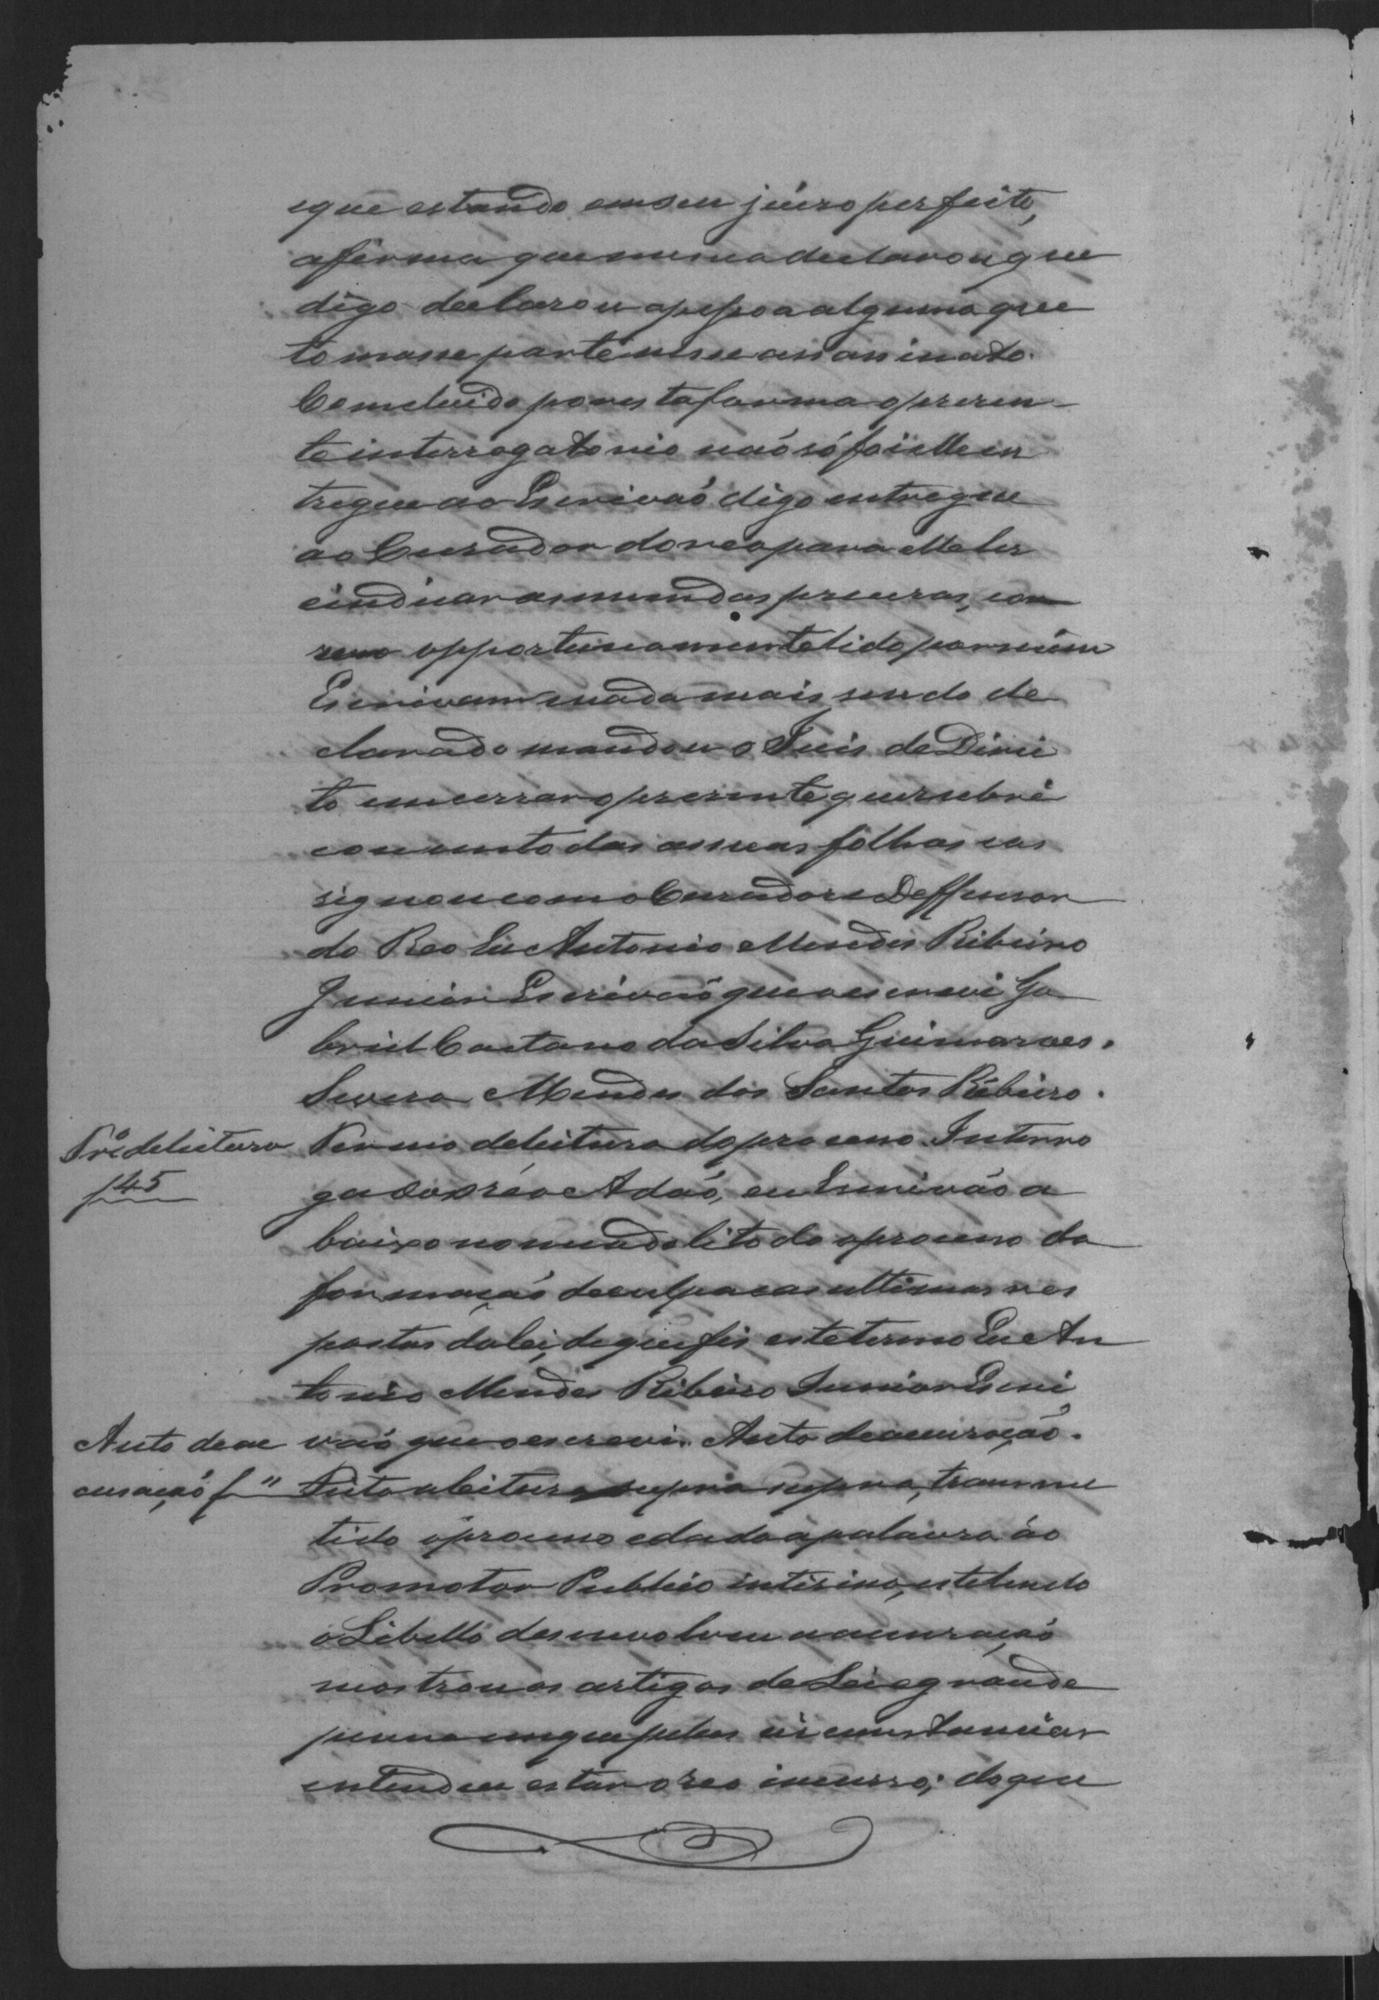 e que estando em seu júizo perfeito,
afirma que nunca declarou que
digo declarou a pessoa alguma que
tomasse parte nesse assassinato.
Comcluido por esta forma o presen-
te interrogatorio não só foi elle en
tregue ao Escrivaõ digo entregue
ao Curador do reo para elle
indicar as emmendas precizas, com
opportunamente lido por mim
Escrivam e nada mais sendo de
clarado mandou o Juis de Direi
to encerrar o prezente que rubri
cou em todas as suas folhas e as
signou com o Curador e Deffensor
do Reo Eu Antonio Mendes Ribeiro
Junior Escrivaõ que o escrevi Ga
briel Caetano da Silva Guimaraes.
Severo Mendes dos Santos Ribeiro.
Tr.º de leitura Termo de leitura do processo Interro
f 45
gado o réo Adaõ, eu Escrivão a
baixo nomeado li todo o processo da
formaçaõ de culpa e as ultimas res
postas da lei, de que fis este termo Eu An
tonio Mendes Ribeiro Junior Escri
Auto de ac vaõ que o escrevi. Auto de accuzaçaõ.
cusaçaõ f " Feita a leitura supra supra, transme
tido o processo e dada a palavra ào
Promotor Publico interino, este lendo
o Libello desenvolveu a accuzaçaõ
mostrou os artigos de Lei e grau de
penna em que pelas circumstancias
entendeu estar o reo incurso; do que